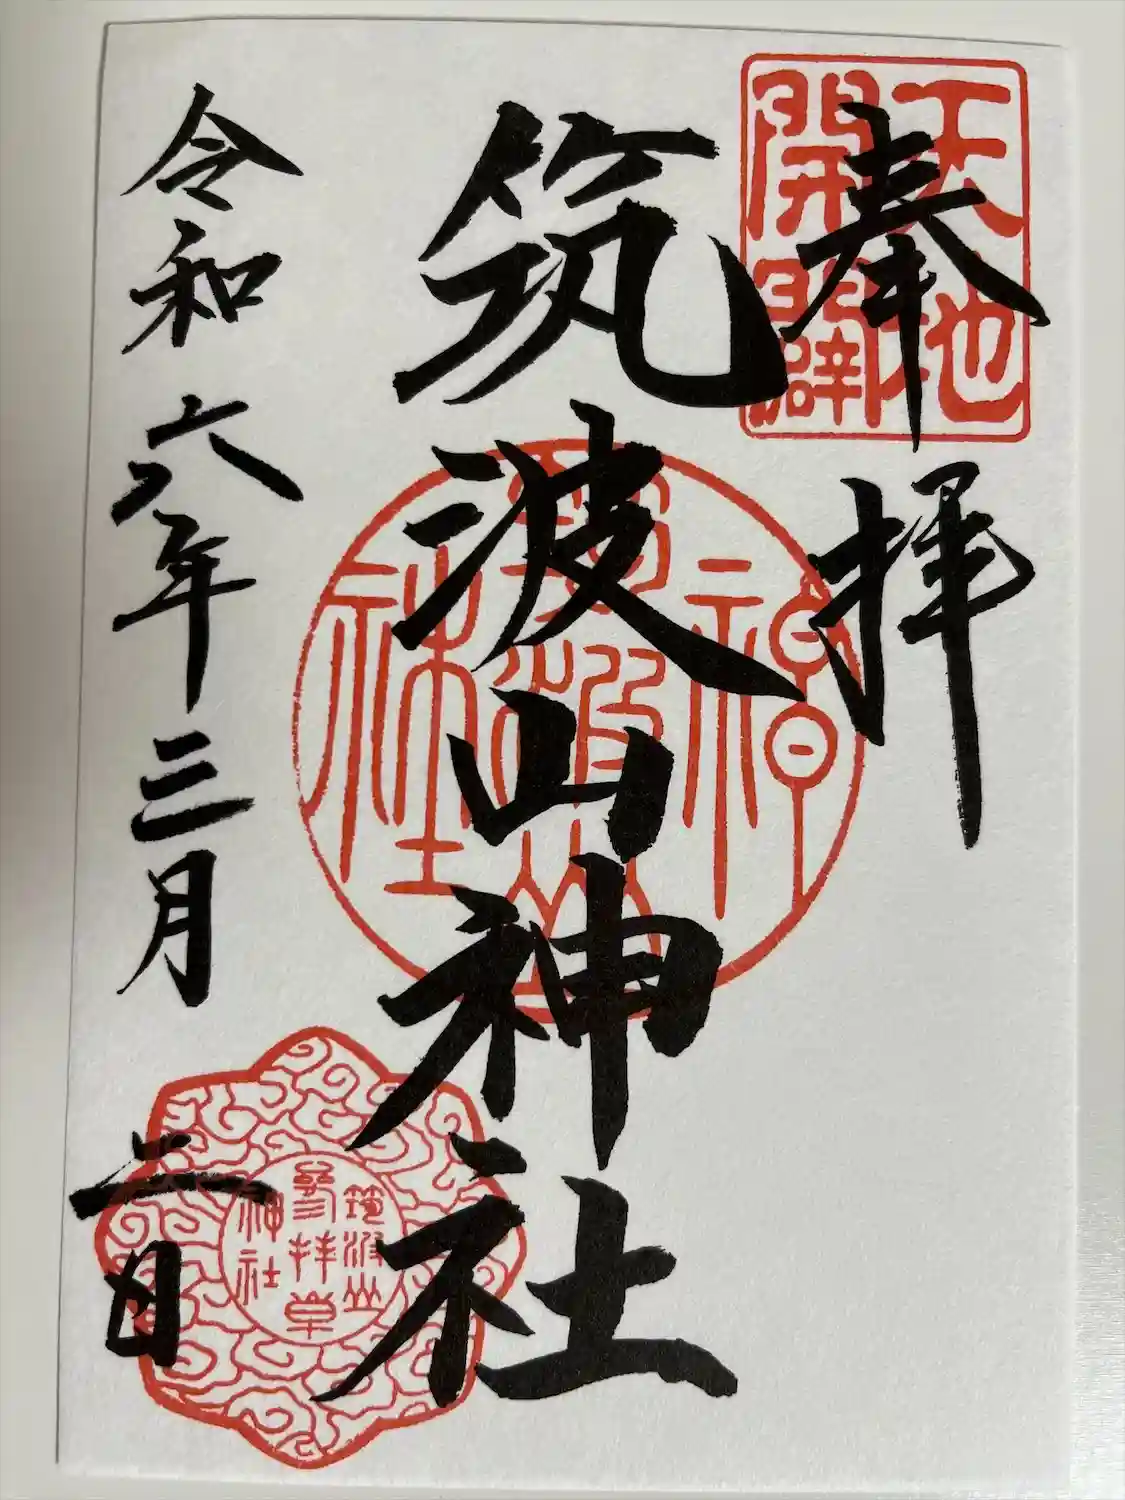 奉拝
天地
開闢
筑波山神社
筑波山
神社
令和六年三月二日
筑波山
参拝章
神社